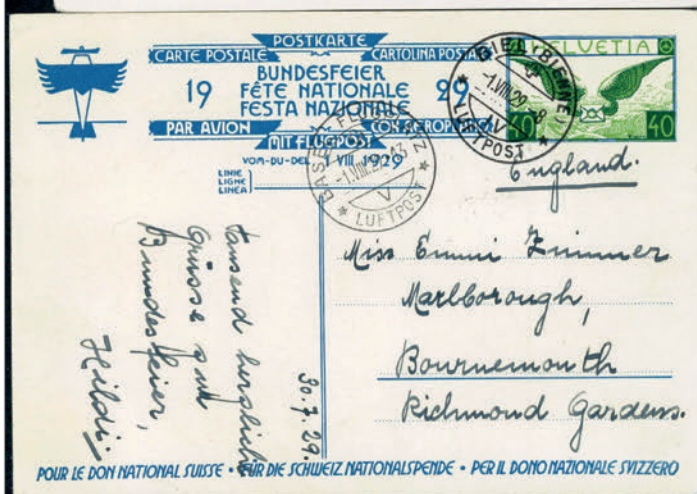 POSTKARTE
CARTE POSTALE CARTOLINA POSTALE
BUNDESFEIER
19 FÊTE NATIONALE 29
FESTA NAZIONALE
PAR AVION CON AEROPLANO
MIT FLUGPOST
VOM-DU-DEL 1 VIII 1929
LINIE
LIGNE
LINEA
HELVETIA
40 40
BIEL (BIENNE)
-1.VIII.29.-8
V
LUFTPOST
BASEL FLUGPLATZ
-1.VIII.29.
V
LUFTPOST
England.
Miss Emmi Zimmer
Marlborough,
Bournemouth
Richmond Gardens.
Tausend herzliche
Grüsse zur
Bundesfeier,
Hildi.
30.7.29.
POUR LE DON NATIONAL SUISSE • FÜR DIE SCHWEIZ. NATIONALSPENDE • PER IL DONO NAZIONALE SVIZZERO